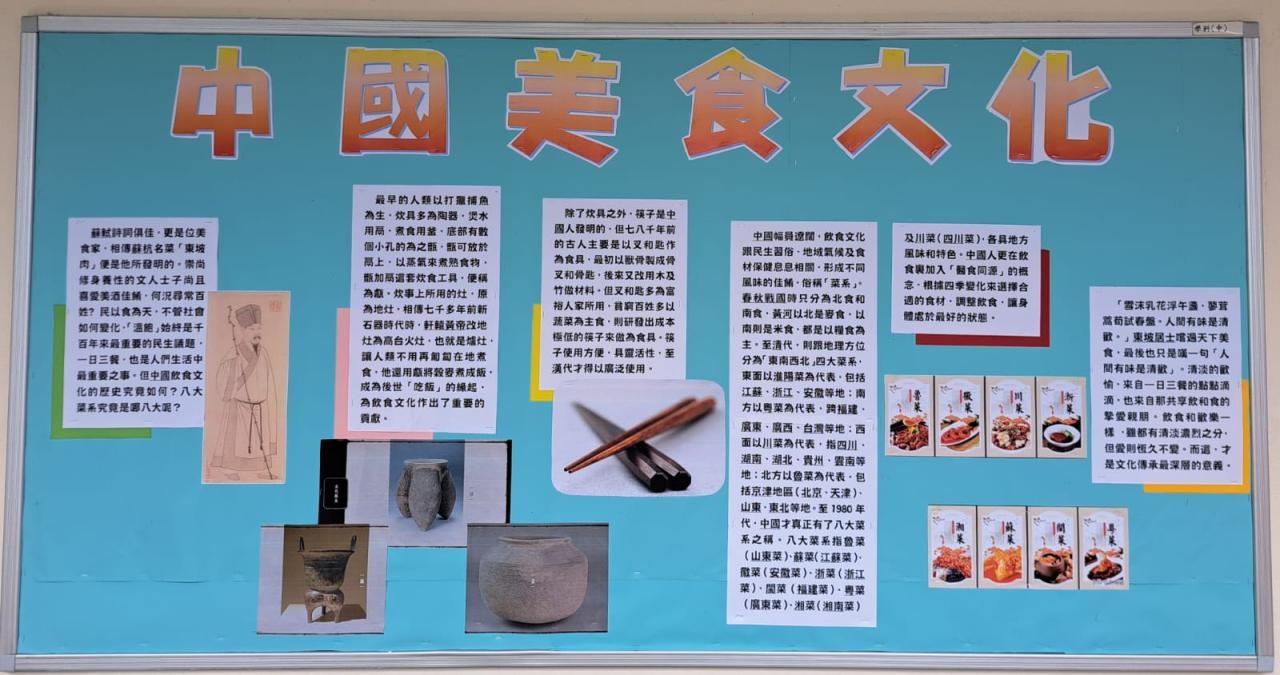 學科(中)
中國美食文化
蘇軾詩詞俱佳，更是位美
食家，相傳蘇杭名菜「東坡
肉」便是他所發明的。崇尚
修身養性的文人士子尚且
喜愛美酒佳餚，何況尋常百
姓？民以食為天，不管社會
如何變化，「溫飽」始終是千
百年來最重要的民生議題，
一日三餐，也是人們生活中
最重要之事。但中國飲食文
化的歷史究竟如何？八大
菜系究竟是哪八大呢？
最早的人類以打獵捕魚
為生，炊具多為陶器，烹水
用鬲，煮食用釜，底部有數
個小孔的為之甑，甑可放於
鬲上，以蒸氣來煮熟食物，
甑加鬲這套炊食工具，便稱
為甗。炊事上所用的灶，原
為地灶，相傳七千多年前新
石器時代時，軒轅黃帝改地
灶為高台火灶，也就是爐灶，
讓人類不用再匍匐在地煮
食，他還用甗將穀麥煮成飯，
成為後世「吃飯」的緣起，
為飲食文化作出了重要的
貢獻。
除了炊具之外，筷子是中
國人發明的，但七八千年前
的古人主要是以叉和匙作
為食具，最初以獸骨製成骨
叉和骨匙，後來又改用木及
竹做材料。但叉和匙多為富
裕人家所用，貧窮百姓多以
蔬菜為主食，則研發出成本
極低的筷子來做為食具。筷
子使用方便，具靈活性，至
漢代才得以廣泛使用。
中國幅員遼闊，飲食文化
跟民生習俗、地域氣候及食
材保健息息相關，形成不同
風味的佳餚，俗稱「菜系」。
春秋戰國時只分為北食和
南食，黃河以北是麥食，以
南則是米食，都是以糧食為
主。至清代，則跟地理方位
分為「東南西北」四大菜系，
東面以淮陽菜為代表，包括
江蘇、浙江、安徽等地；南
方以粵菜為代表，跨福建、
廣東、廣西、台灣等地；西
面以川菜為代表，指四川、
湖南、湖北、貴州、雲南等
地；北方以魯菜為代表，包
括京津地區（北京、天津）、
山東、東北等地。至 1980 年
代，中國才真正有了八大菜
系之稱。八大菜系指魯菜
（山東菜）、蘇菜（江蘇菜）、
徽菜（安徽菜）、浙菜（浙江
菜）、閩菜（福建菜）、粵菜
（廣東菜）、湘菜（湖南菜）
及川菜（四川菜），各具地方
風味和特色。中國人更在飲
食裏加入「醫食同源」的概
念，根據四季變化來選擇合
適的食材，調整飲食，讓身
體處於最好的狀態。
魯菜
徽菜
川菜
浙菜
湘菜
蘇菜
閩菜
粵菜
「雪沫乳花浮午盞，蓼茸
蒿荀試春盤。人間有味是清
歡。」東坡居士嚐遍天下美
食，最後也只是嘆一句「人
間有味是清歡」。清淡的歡
愉，來自一日三餐的點點滴
滴，也來自那共享飲和食的
摯愛親朋。飲食和歡樂一
樣，雖都有清淡濃烈之分，
但愛則恆久不變。而這，才
是文化傳承最深層的意義。